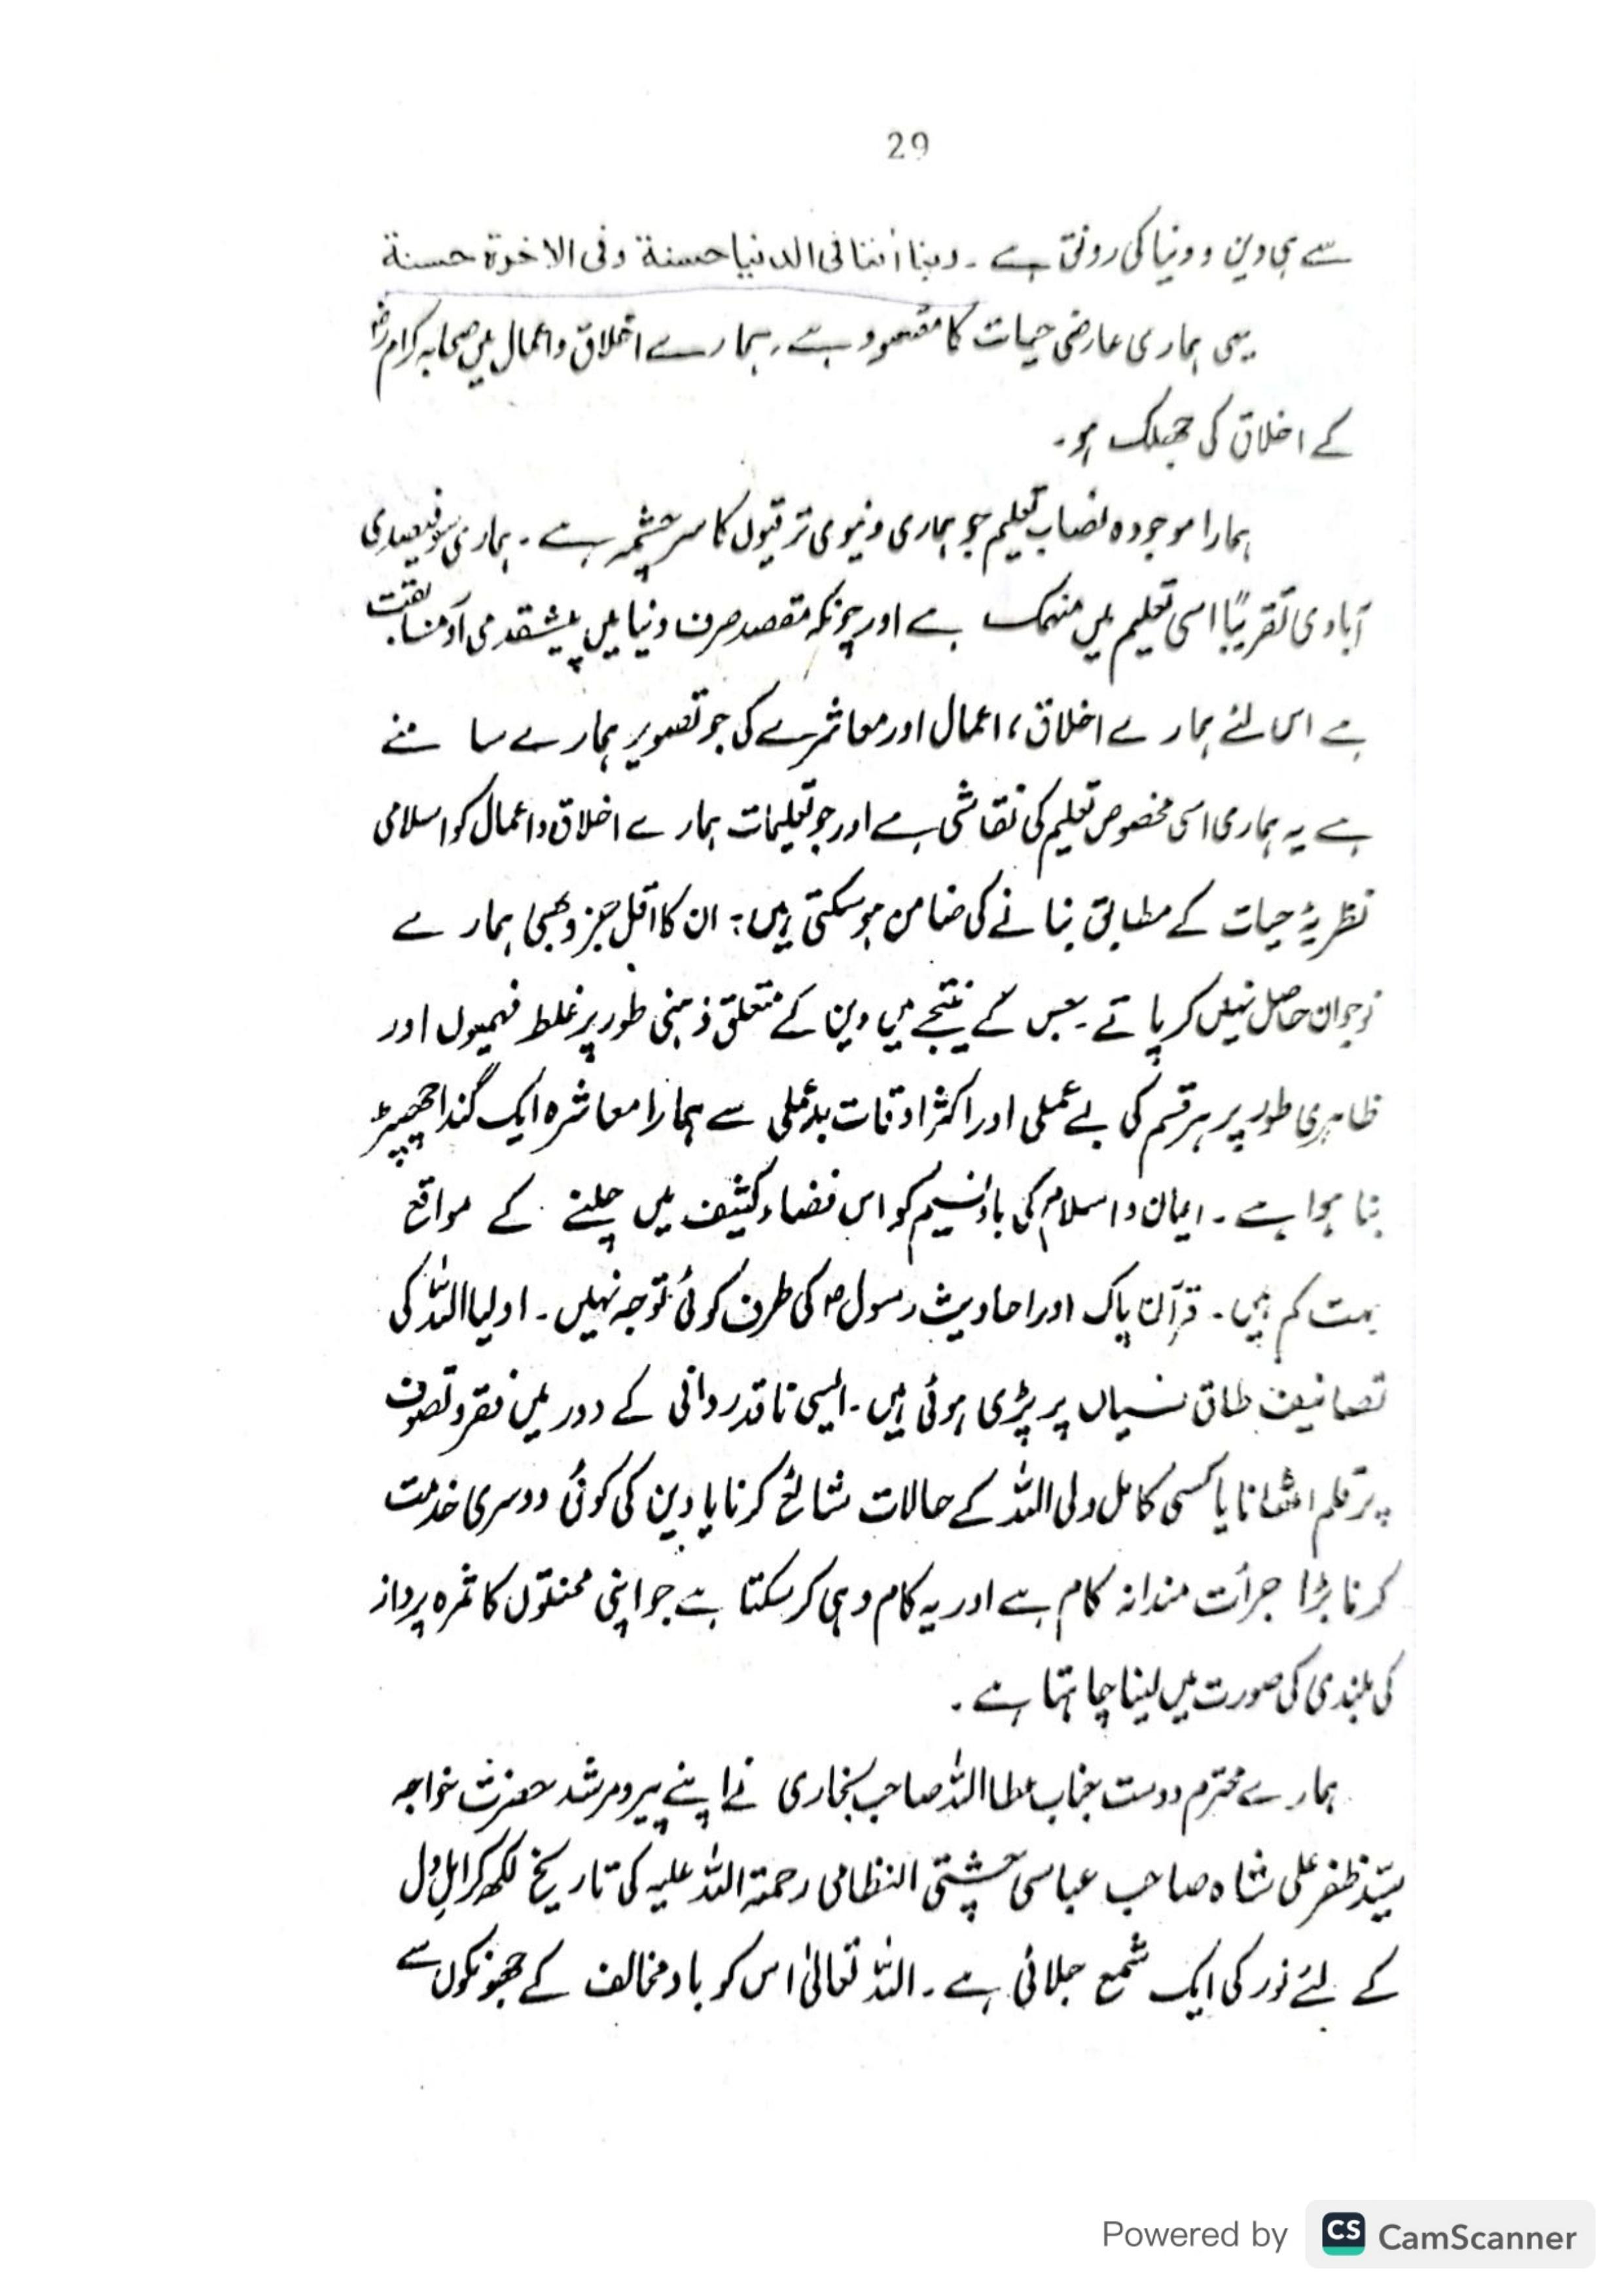 29
سے ہی دین و دنیا کی رونق ہے ۔ ربنا اٰتنا فی الدنیا حسنة وفی الاخرة حسنة
یہی ہماری عارضی حیات کا مقصود ہے ۔ ہمارے اخلاق و اعمال میں صحابہ کرام رضؓ
کے اخلاق کی جھلک ہو ۔
ہمارا موجودہ نصاب تعلیم جو ہماری دنیوی ترقیوں کا سرچشمہ ہے ۔ ہماری سو فیصدی
آبادی تقریباً اسی تعلیم میں منہمک ہے اور چونکہ مقصد صرف دنیا میں پیشقدمی اور مسابقت
ہے اس لئے ہمارے اخلاق ، اعمال اور معاشرے کی جو تصویر ہمارے سامنے
ہے یہ ہماری اسی مخصوص تعلیم کی نقاشی ہے اور جو تعلیمات ہمارے اخلاق و اعمال کو اسلامی
نظریۂ حیات کے مطابق بنانے کی ضامن ہو سکتی ہیں ؛ ان کا اقل جزو بھی ہمارے
نوجوان حاصل نہیں کر پاتے ۔ جس کے نتیجے میں دین کے متعلق ذہنی طور پر غلط فہمیوں اور
ظاہری طور پر ہر قسم کی بے عملی اور اکثر اوقات بدعملی سے ہمارا معاشرہ ایک گندا چھپڑ
بنا ہوا ہے ۔ ایمان و اسلام کی بادِ نسیم کو اس فضاء کثیف میں چلنے کے مواقع
بہت کم ہیں ۔ قرآن پاک اور احادیث رسولؐ کی طرف کوئی توجہ نہیں ۔ اولیا اللہ کی
تصانیف طاق نسیاں پر پڑی ہوئی ہیں ۔ ایسی ناقدردانی کے دور میں فقر و تصوف
پر قلم اٹھانا یا کسی کامل ولی اللہ کے حالات شائع کرنا یا دین کی کوئی دوسری خدمت
کرنا بڑا جرأت مندانہ کام ہے اور یہ کام وہی کر سکتا ہے جو اپنی محنتوں کا ثمرہ پرواز
کی بلندی کی صورت میں لینا چاہتا ہے ۔
ہمارے محترم دوست جناب عطا اللہ صاحب بخاری نے اپنے پیر و مرشد حضرت خواجہ
سیّد ظفر علی شاہ صاحب عباسی چشتی النظامی رحمتہ اللہ علیہ کی تاریخ لکھ کر اہل دل
کے لئے نور کی ایک شمع جلائی ہے ۔ اللہ تعالیٰ اس کو باد مخالف کے جھونکوں سے
Powered by CS CamScanner